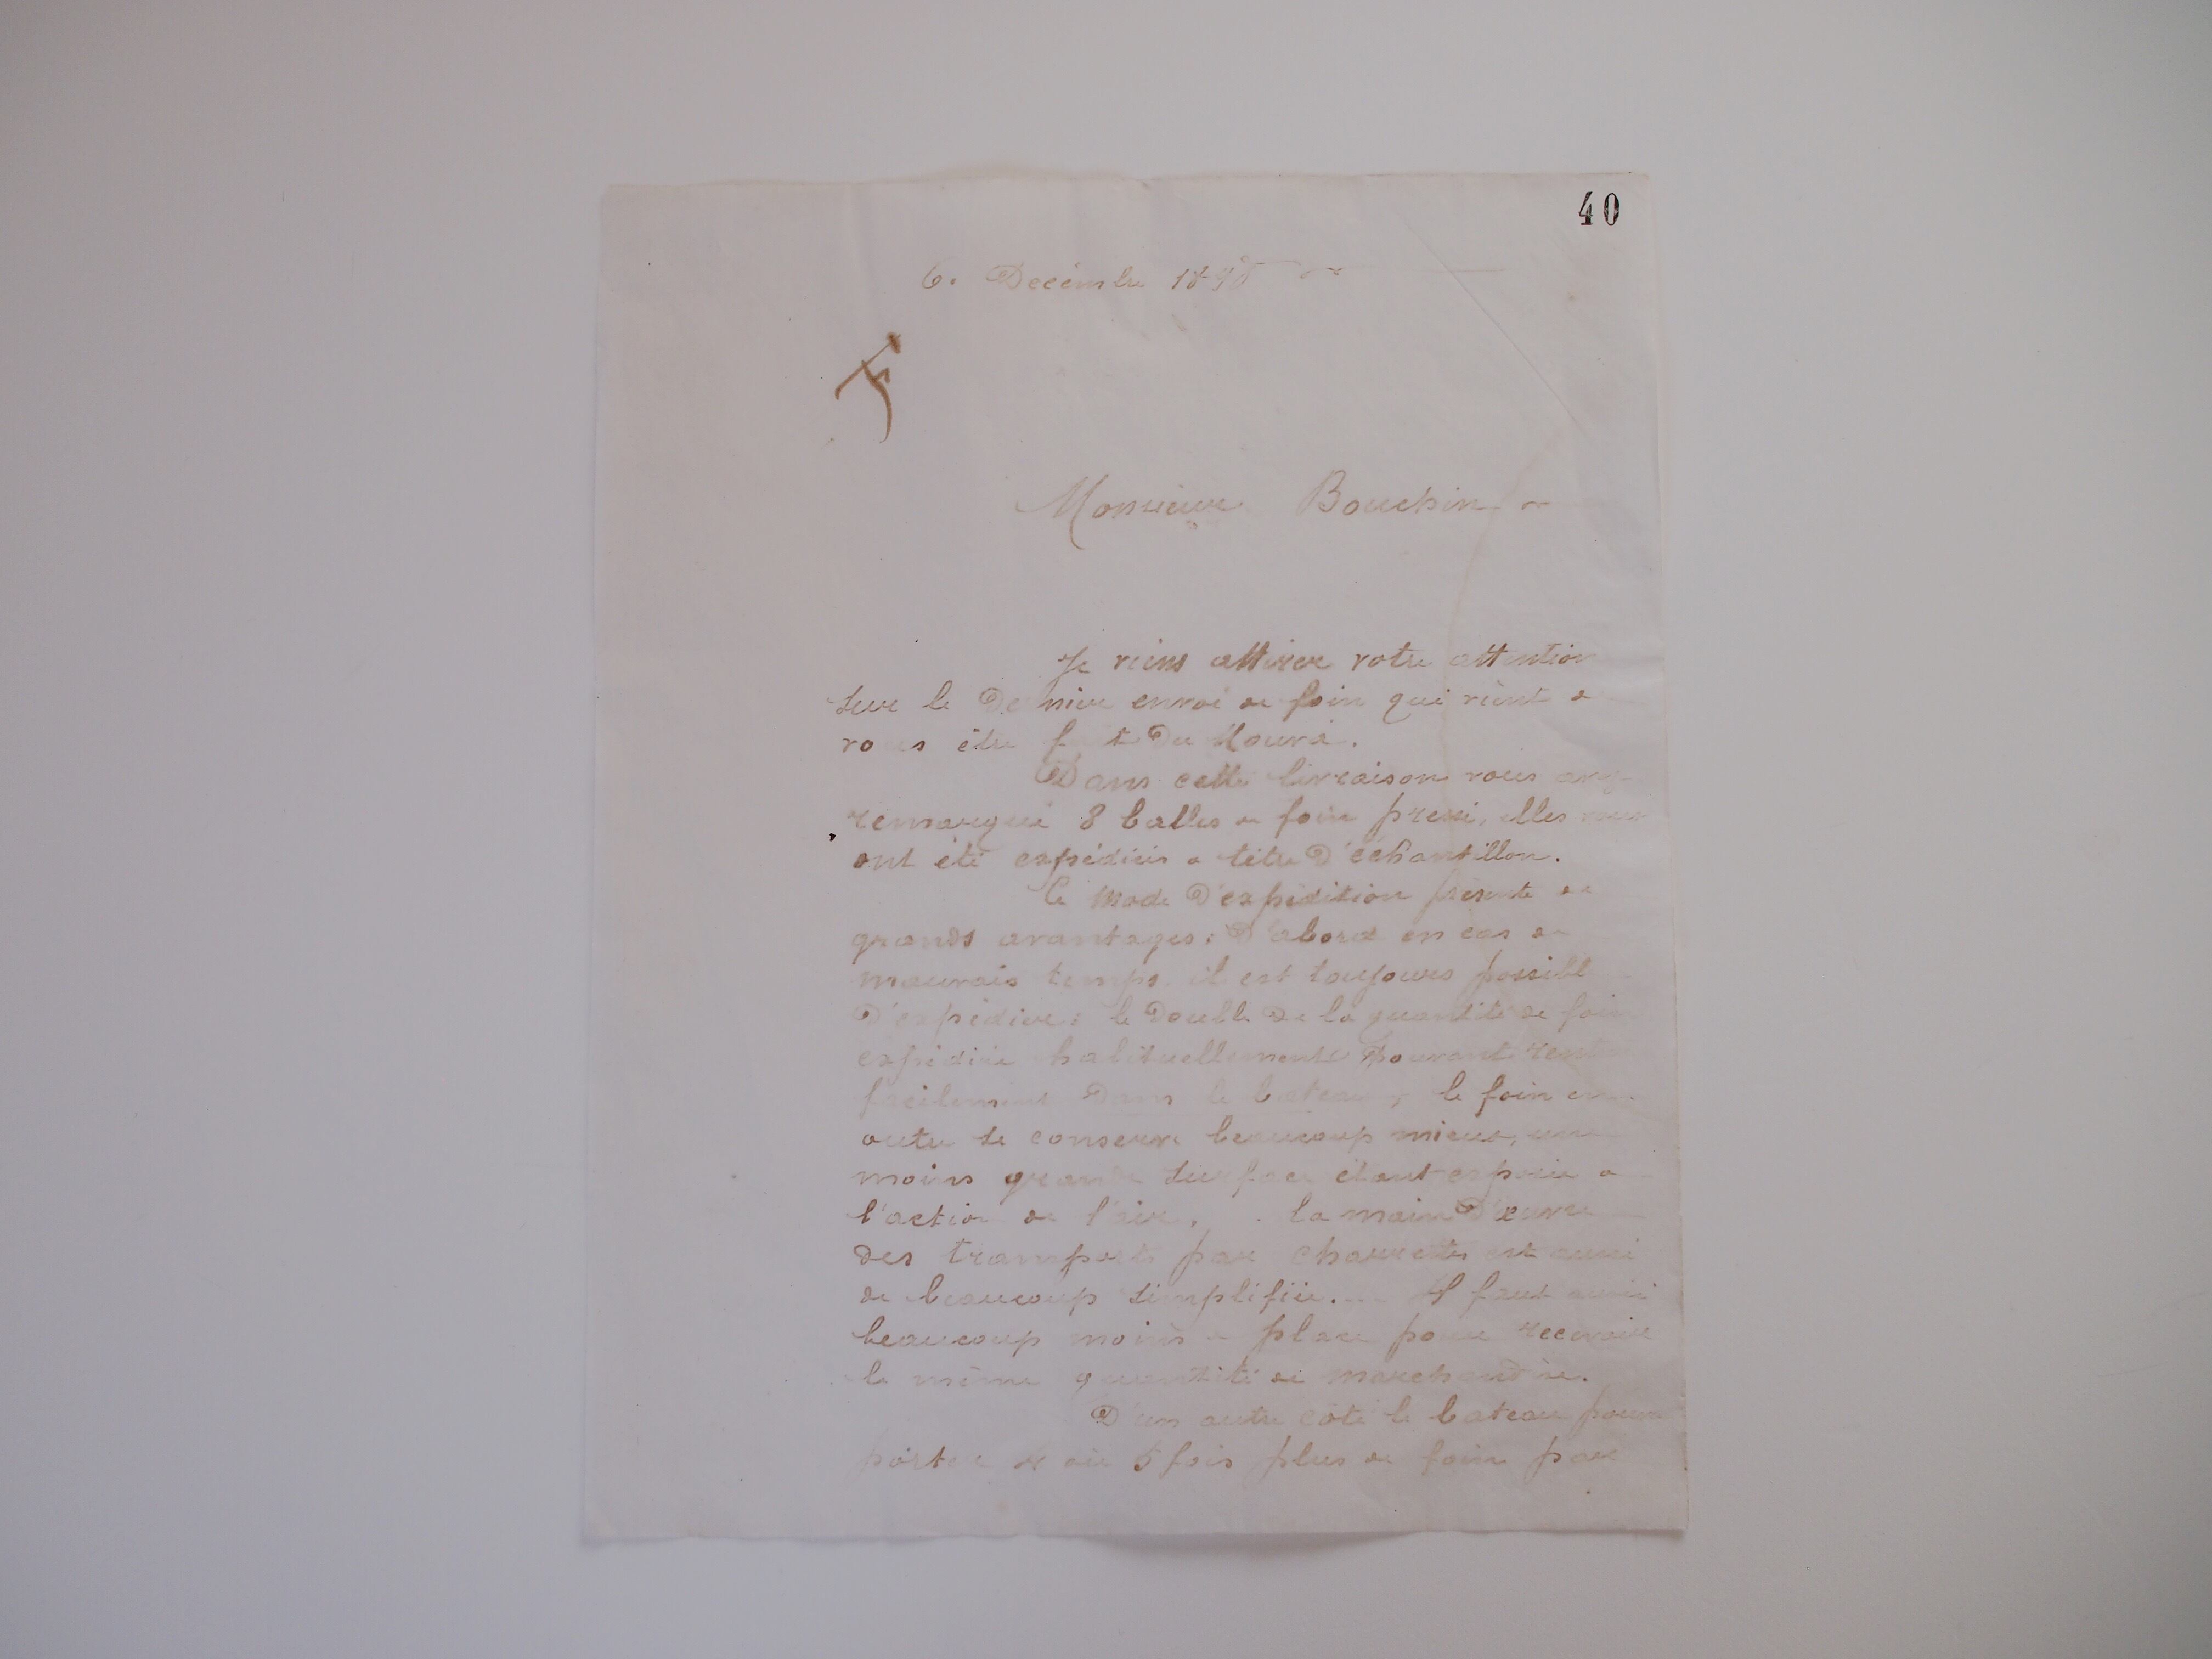 40
6. Décembre 1898
Monsieur Bouchin
Je viens attirer votre attention
sur le dernier envoi de foin qui vient de
vous être fait du
Dans cette livraison vous avez
remarqué 8 balles de foin pressé, elles vous
ont été expédiées a titre d'échantillon.
Ce mode d'expédition présente de
grands avantages: d'abord en cas de
mauvais temps il est toujours possible
d'expédier: le double de la quantité de foin
expédiée habituellement pouvant rentrer
facilement dans le bateau, le foin en
outre se conserve beaucoup mieux, une
moins grande surface étant exposée a
l'action de l'air, la main d'œuvre
des transports par charrettes est aussi
de beaucoup simplifiée.... Il faut aussi
beaucoup moins de place pour recevoir
la même quantité de marchandise.
D'un autre côté le bateau pourra
porter 4 ou 5 fois plus de foin par